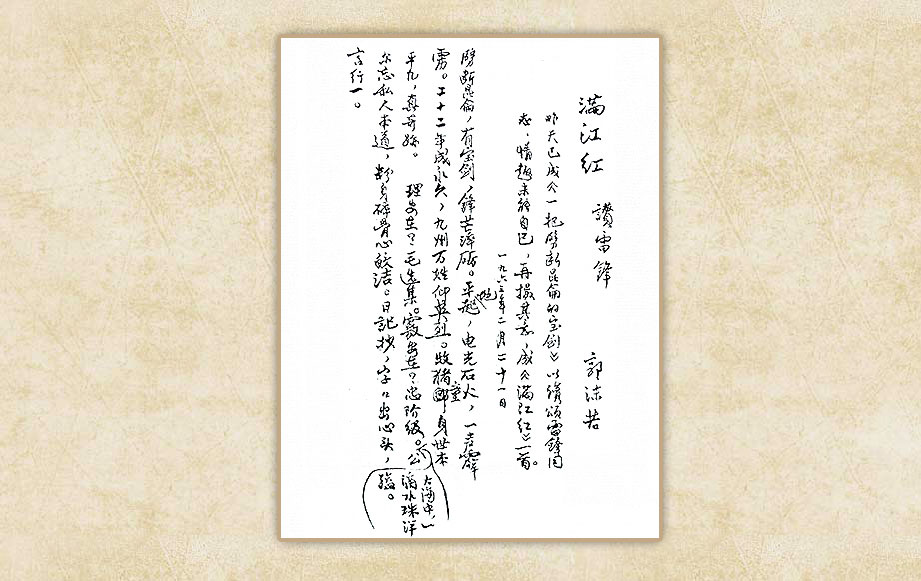 满江红 讚雷锋 郭沫若
昨天已成《一把劈断昆仑的宝剑》以颂雷锋同
志，情趣未能自已，再掇其意，成《满江红》一首。
一九六三年二月二十一日
劈断昆仑，有宝剑，锋芒淬砺。平地起，电光石火，一声霹
雳。二十二年成永久，九州万姓仰英烈。牧猪童身世本
平凡，真奇绝。 理安在？毛选集。窍安在？忠阶级。公
尔忘私人本道，粉身碎骨心皎洁。日记抄，字字出心头，
言行一。
大海中，一
滴水珠洋
溢。